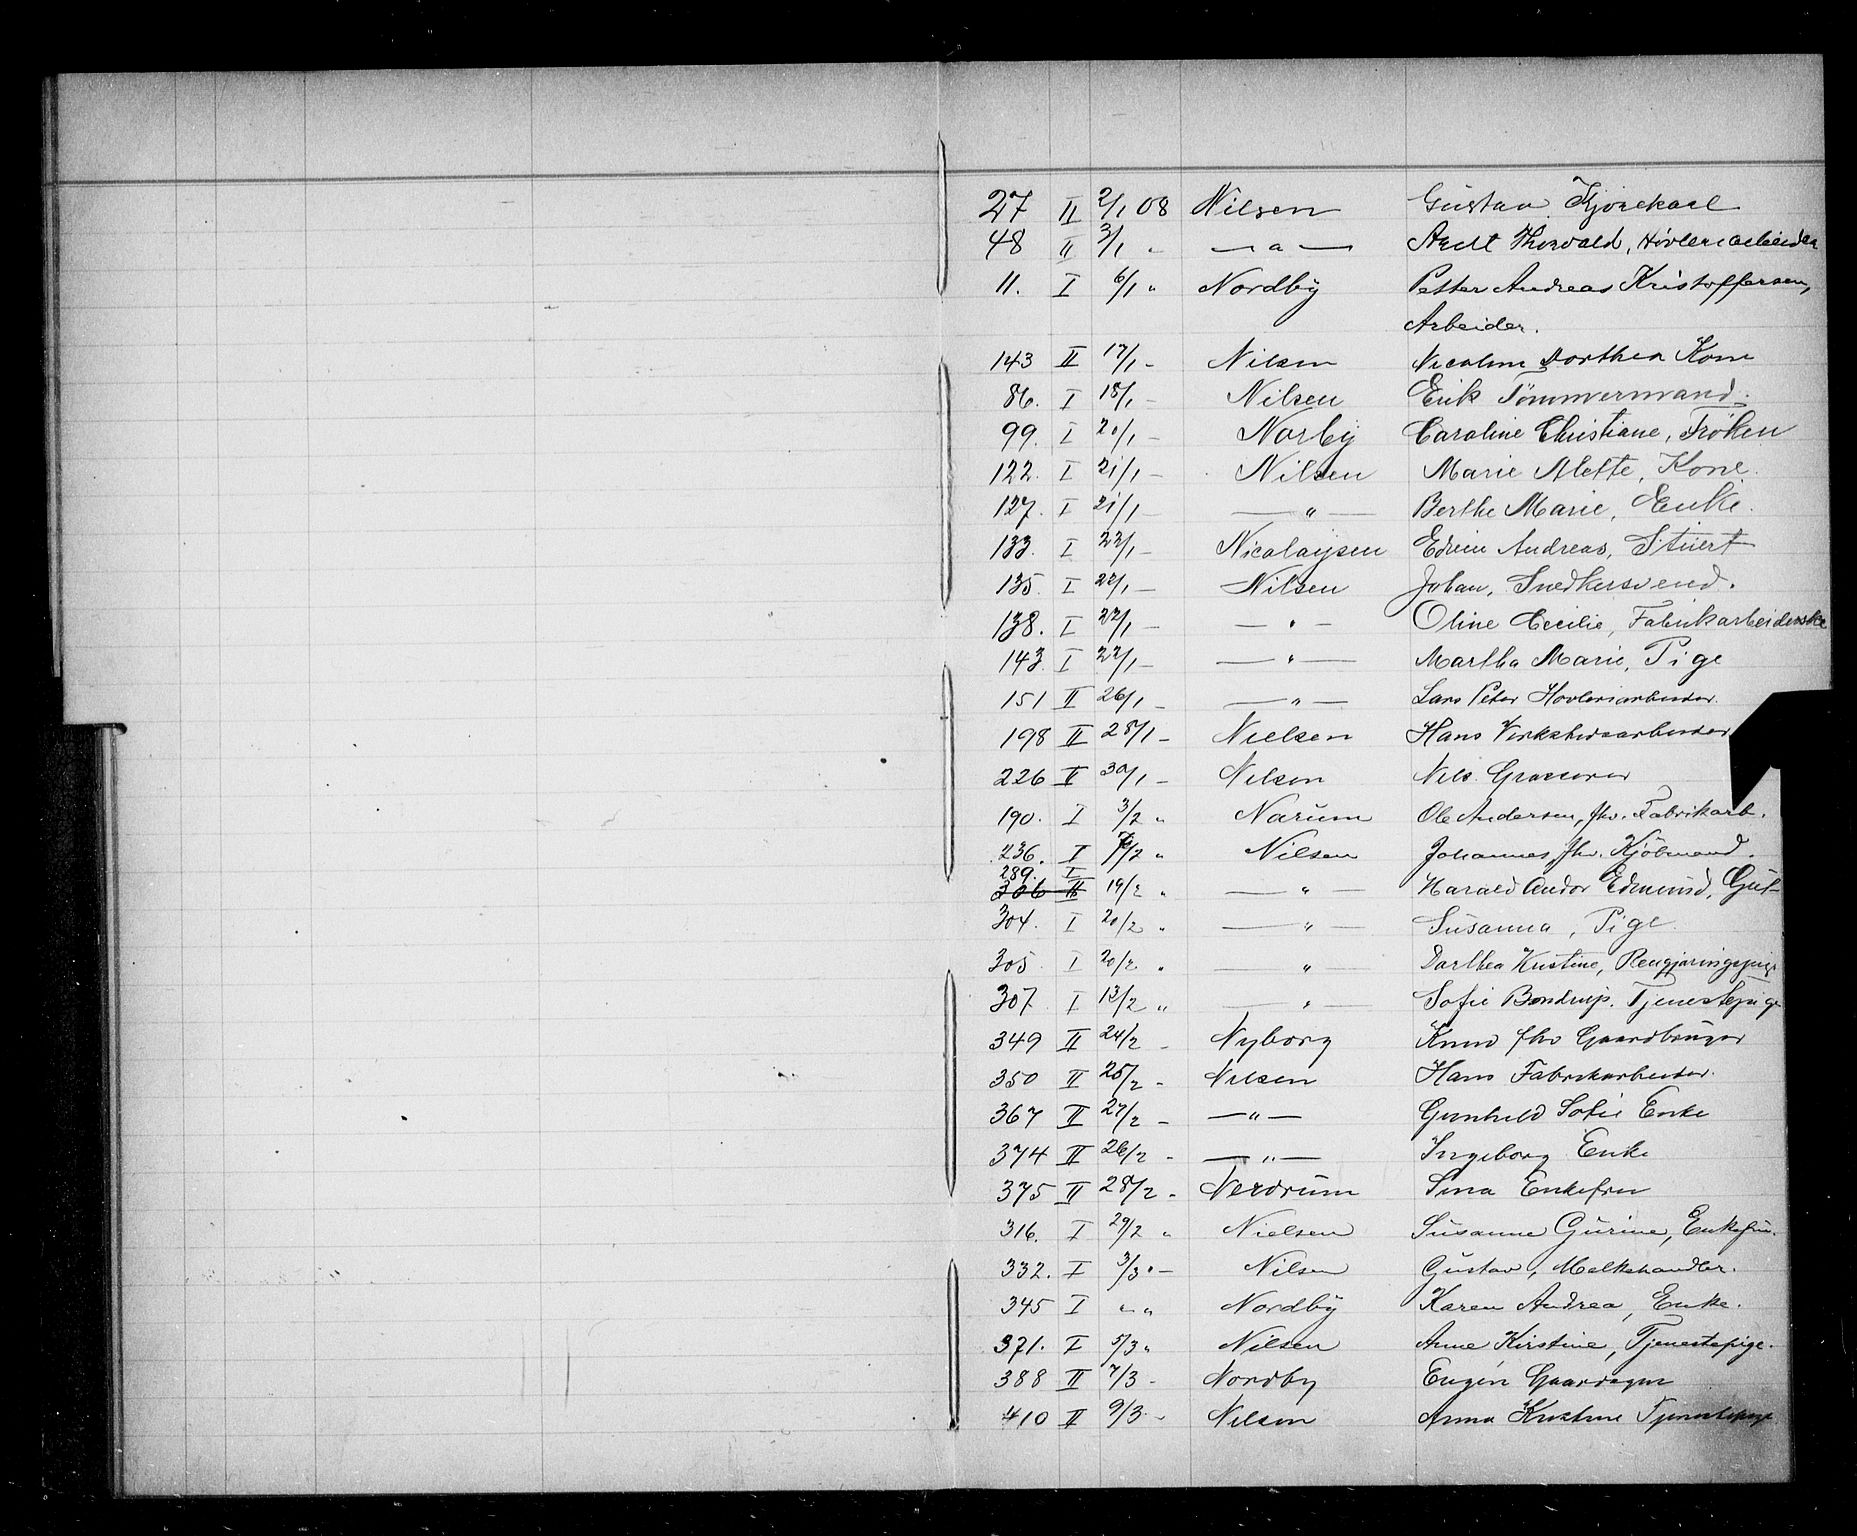 27 II 2/1 08 Nilsen Gustav Kjørekarl
48 II 3/1 " — " — Arelt Thorvald, Høvleriarbeider
11. I 6/1 " Nordby Petter Andreas Kristoffersen,
Arbeider.
143 II 17/1 - Nilsen Nicoline Dorthea Kone
86. I 18/1 - Nilsen Erik Tømmermand.
99. I 20/1 - Norby Caroline Christiane, Frøken
122. I 21/1 - Nilsen Marie Alette, Kone.
127. I 21/1 - — " — Berthe Marie, Enke.
133. I 22/1 - Nicolaysen Edvin Andreas, Stuert
135. I 22/1 - Nilsen Johan, Snedkersvend.
138. I 22/1 - — " — Oline Cecilie, Fabrikarbeiderske
143. I 22/1 - — " — Martha Marie, Pige
151 II 26/1 - — " — Lars Peter Høvleriarbeider.
198 II 28/1 - Nielsen Hans Verkstedsarbeider
226 II 30/1 - Nilsen Nils
190. I 3/2 " Narum Ole Andersen, fhv. Fabrikarb.
236. I 7/2 " Nilsen Johannes, fhv. Kjøbmand.
289. I
306 II 19/2 " — " — Harald Andor Edmund, Gut
304. I 20/2 " — " — Susanna, Pige.
305 I 20/2 " — " — Dorthea Kristine, Rengjøringspige
307 I 13/2 " — " — Sofie Bondrup. Tjenestepige
349 II 24/2 - Nyborg Knud fhv Gaardbruger
350 II 25/2 - Nilsen Hans Fabrikarbeider.
367 II 27/2 - — " — Gunhild Sofie Enke
374 II 26/2 - — " — Ingeborg Enke
375 II 28/2 - Nerdrum Sina Enkefru
316. I 29/2 " Nielsen Susanne Gurine, Enkefru.
332. I 3/3 - Nilsen Gustav, Melkehandler.
345 I " " Nordby Karen Andrea, Enke.
371. I 5/3 " Nilsen Anne Kirstine, Tjenestepige.
388 II 7/3 - Nordby Eugen Gaardeger
410 II 9/3 - Nilsen Anna Kristine Tjenestepige